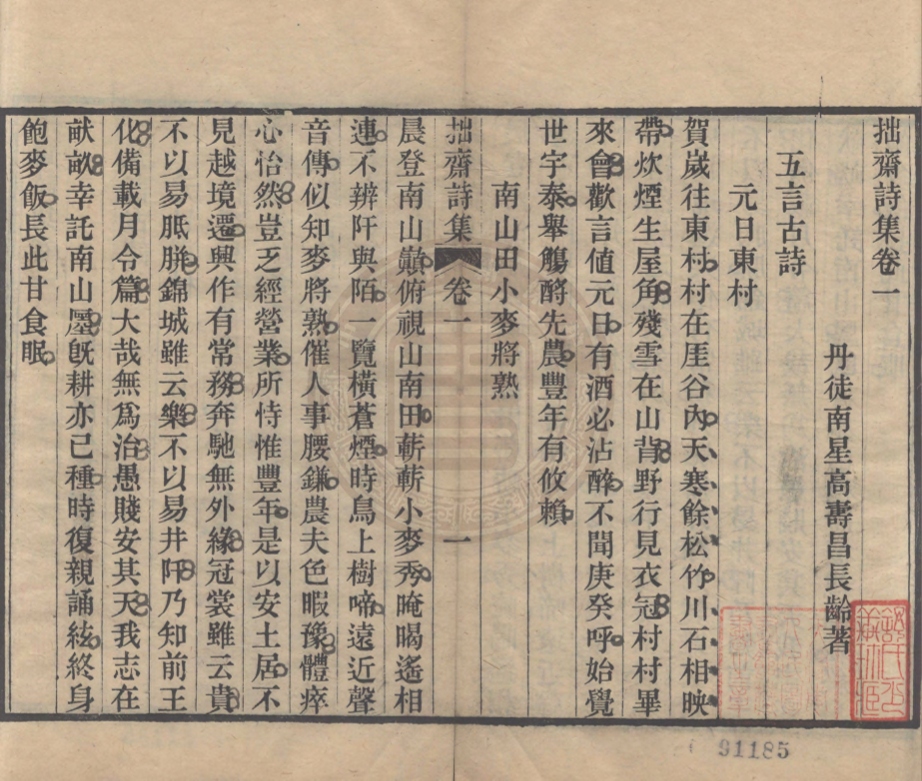 拙齋詩集卷一
丹徒南星高壽昌長齡著
五言古詩
元日東村
賀歲往東村村在厓谷內天寒餘松竹川石相映
帶炊煙生屋角殘雪在山背野行見衣冠村村畢
來會歡言値元日有酒必沾醉不聞庚癸呼始覺
世宇泰舉觴酹先農豐年有攸賴
南山田小麥將熟
拙齋詩集 卷一 一
晨登南山巓俯視山南田蘄蘄小麥秀晻暍遙相
連不辨阡與陌一覽橫蒼煙時鳥上樹啼遠近聲
音傳似知麥將熟催人事腰鎌農夫色暇豫體瘁
心怡然豈乏經營業所恃惟豐年是以安土居不
見越境遷興作有常務奔馳無外緣冠裳雖云貴
不以易胝胼錦城雖云樂不以易井阡乃知前王
化備載月令篇大哉無爲治愚賤安其天我志在
畎畝幸託南山廛旣耕亦已種時復親誦絃終身
飽麥飯長此甘食眠
91185